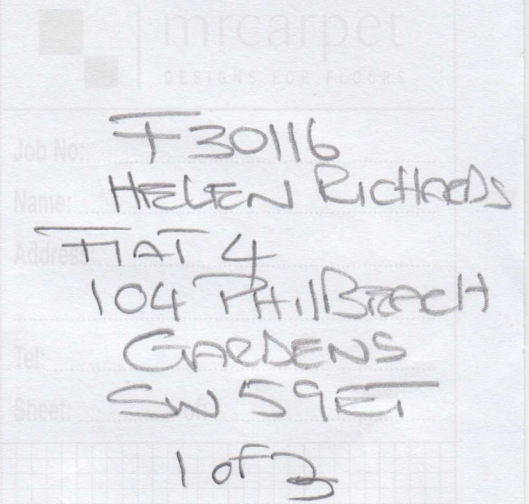 mrcarpet
DESIGNS FOR FLOORS
Job No: F30116
Name: HELEN RICHARDS
Address: FLAT 4
104 PHILLBEACH
Tel: GARDENS
Sheet: of: SW5 9ET
1 of 3